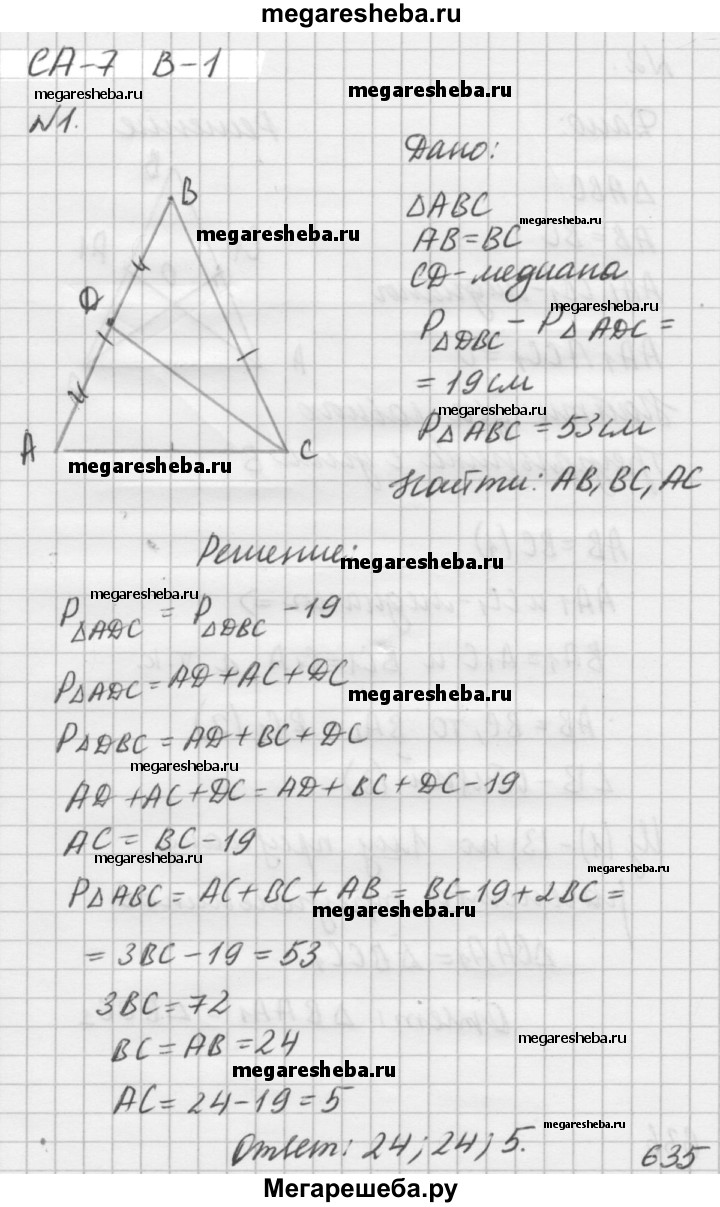 megaresheba.ru
СА-7 В-1
megaresheba.ru
megaresheba.ru
№1.
Дано:
B
△ABC
megaresheba.ru
megaresheba.ru
AB=BC
CD-медиана
D
megaresheba.ru
P△DBC - P△ADC =
= 19см
megaresheba.ru
P△ABC = 53см
A
C
megaresheba.ru
Найти: AB, BC, AC
Решение:
megaresheba.ru
megaresheba.ru
P△ADC = P△DBC -19
P△ADC = AD+AC+DC
megaresheba.ru
P△DBC = AD+BC+DC
megaresheba.ru
AD+AC+DC=AD+BC+DC-19
AC=BC-19
megaresheba.ru
megaresheba.ru
P△ABC = AC+BC+AB = BC-19+2BC =
megaresheba.ru
= 3BC-19=53
3BC=72
BC=AB=24
megaresheba.ru
megaresheba.ru
AC=24-19=5
Ответ: 24; 24; 5.
megaresheba.ru
635
Мегарешеба.ру